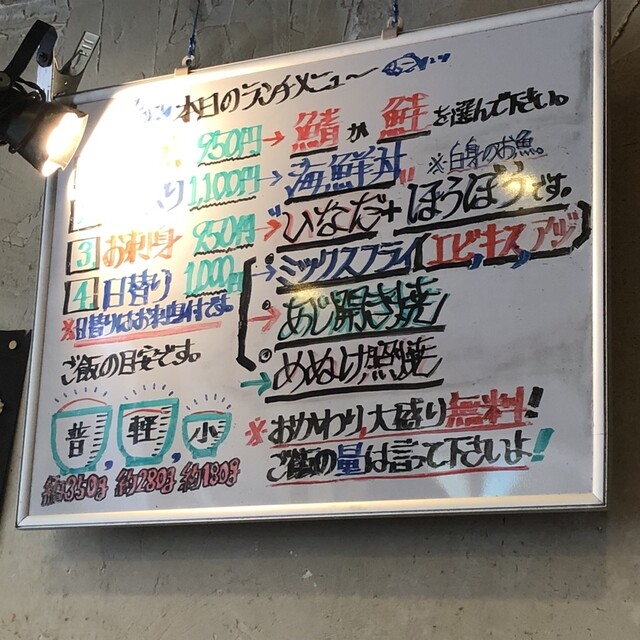 本日のランチメニュー
950円→鯖か鮭を選んで下さい。
り 1,100円→海鮮丼 ※白身のお魚。
3.お刺身 950円→"ひなだ"+ほうぼうです。
4.日替り 1,000円→・ミックスフライ(エビ,キス,アジ)
※日替りはお刺身付です →・あじ開き焼
ご飯の目安です。 →・めぬけ照焼
普,軽,小 ※おかわり,大盛り無料!
約350g 約280g 約180g ご飯の量は言って下さいよ!